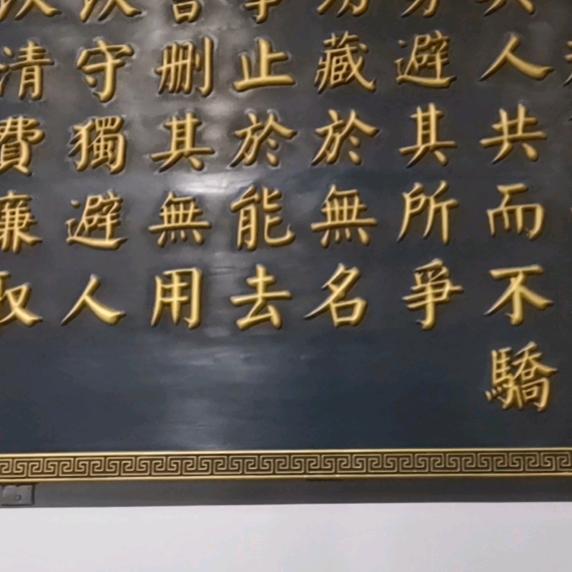 人共而不驕
避其所爭
藏於無名
止於能去
删其無用
守獨避人
清費廉取